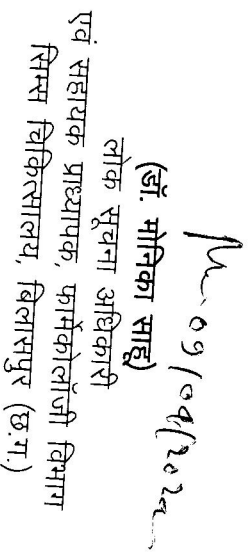 09/09/202
(डॉ. मोनिका साहू)
लोक सूचना अधिकारी
एवं सहायक प्राध्यापक, फार्माकोलॉजी विभाग
सिम्स चिकित्सालय, बिलासपुर (छ.ग.)